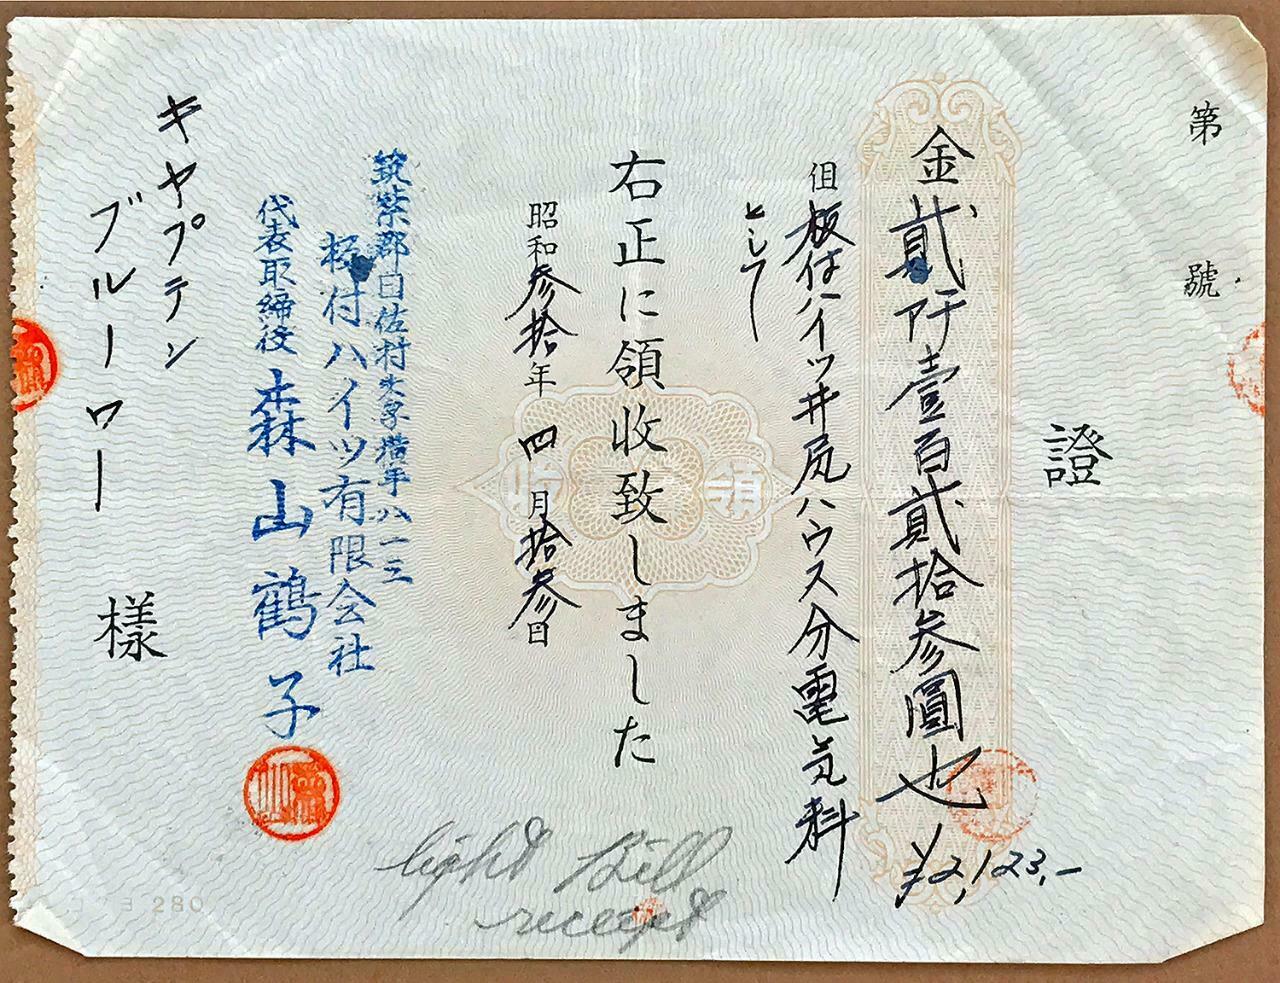 第 號
證
金貳阡壹百貳拾参圓也
¥2,123.-
但板付ハイツ井尻ハウス分電気料
として
右正に領收致しました
昭和参拾年四月拾参日
筑紫郡日佐村大字横手八一三
板付ハイツ有限会社
代表取締役 森山鶴子
キヤプテン
ブルーワー 様
light Bill
receipt
領 收
280